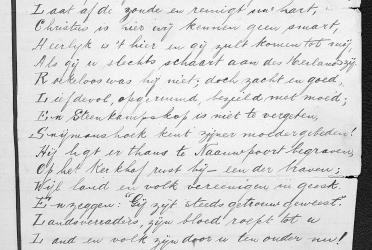 Laat af de zonde en reinigt uw hart,
Christus is hier wij kennen geen smart,
Heerlyk is 't hier en gij zult komen tot mij,
Als gij u slechts schaart aan des Heilands zij.
Roekeloos was hij niet; doch zacht en goed,
Liefdevol, opgeruimd, bezield met moed;
En Steenkampskop is niet te vergeten,
Snymanshoek kent zijner moldergebeden!
Hij ligt er thans te Naauwpoort begraven,
Op het Kerkhof rust hij – een der braven;
Wijl land en volk vereenigen in geest.
En zeggen: "Gij zijt steeds getrouw geweest".
Landverraders, zijn bloed roept tot u
Land en volk zijn door u ten onder nu!